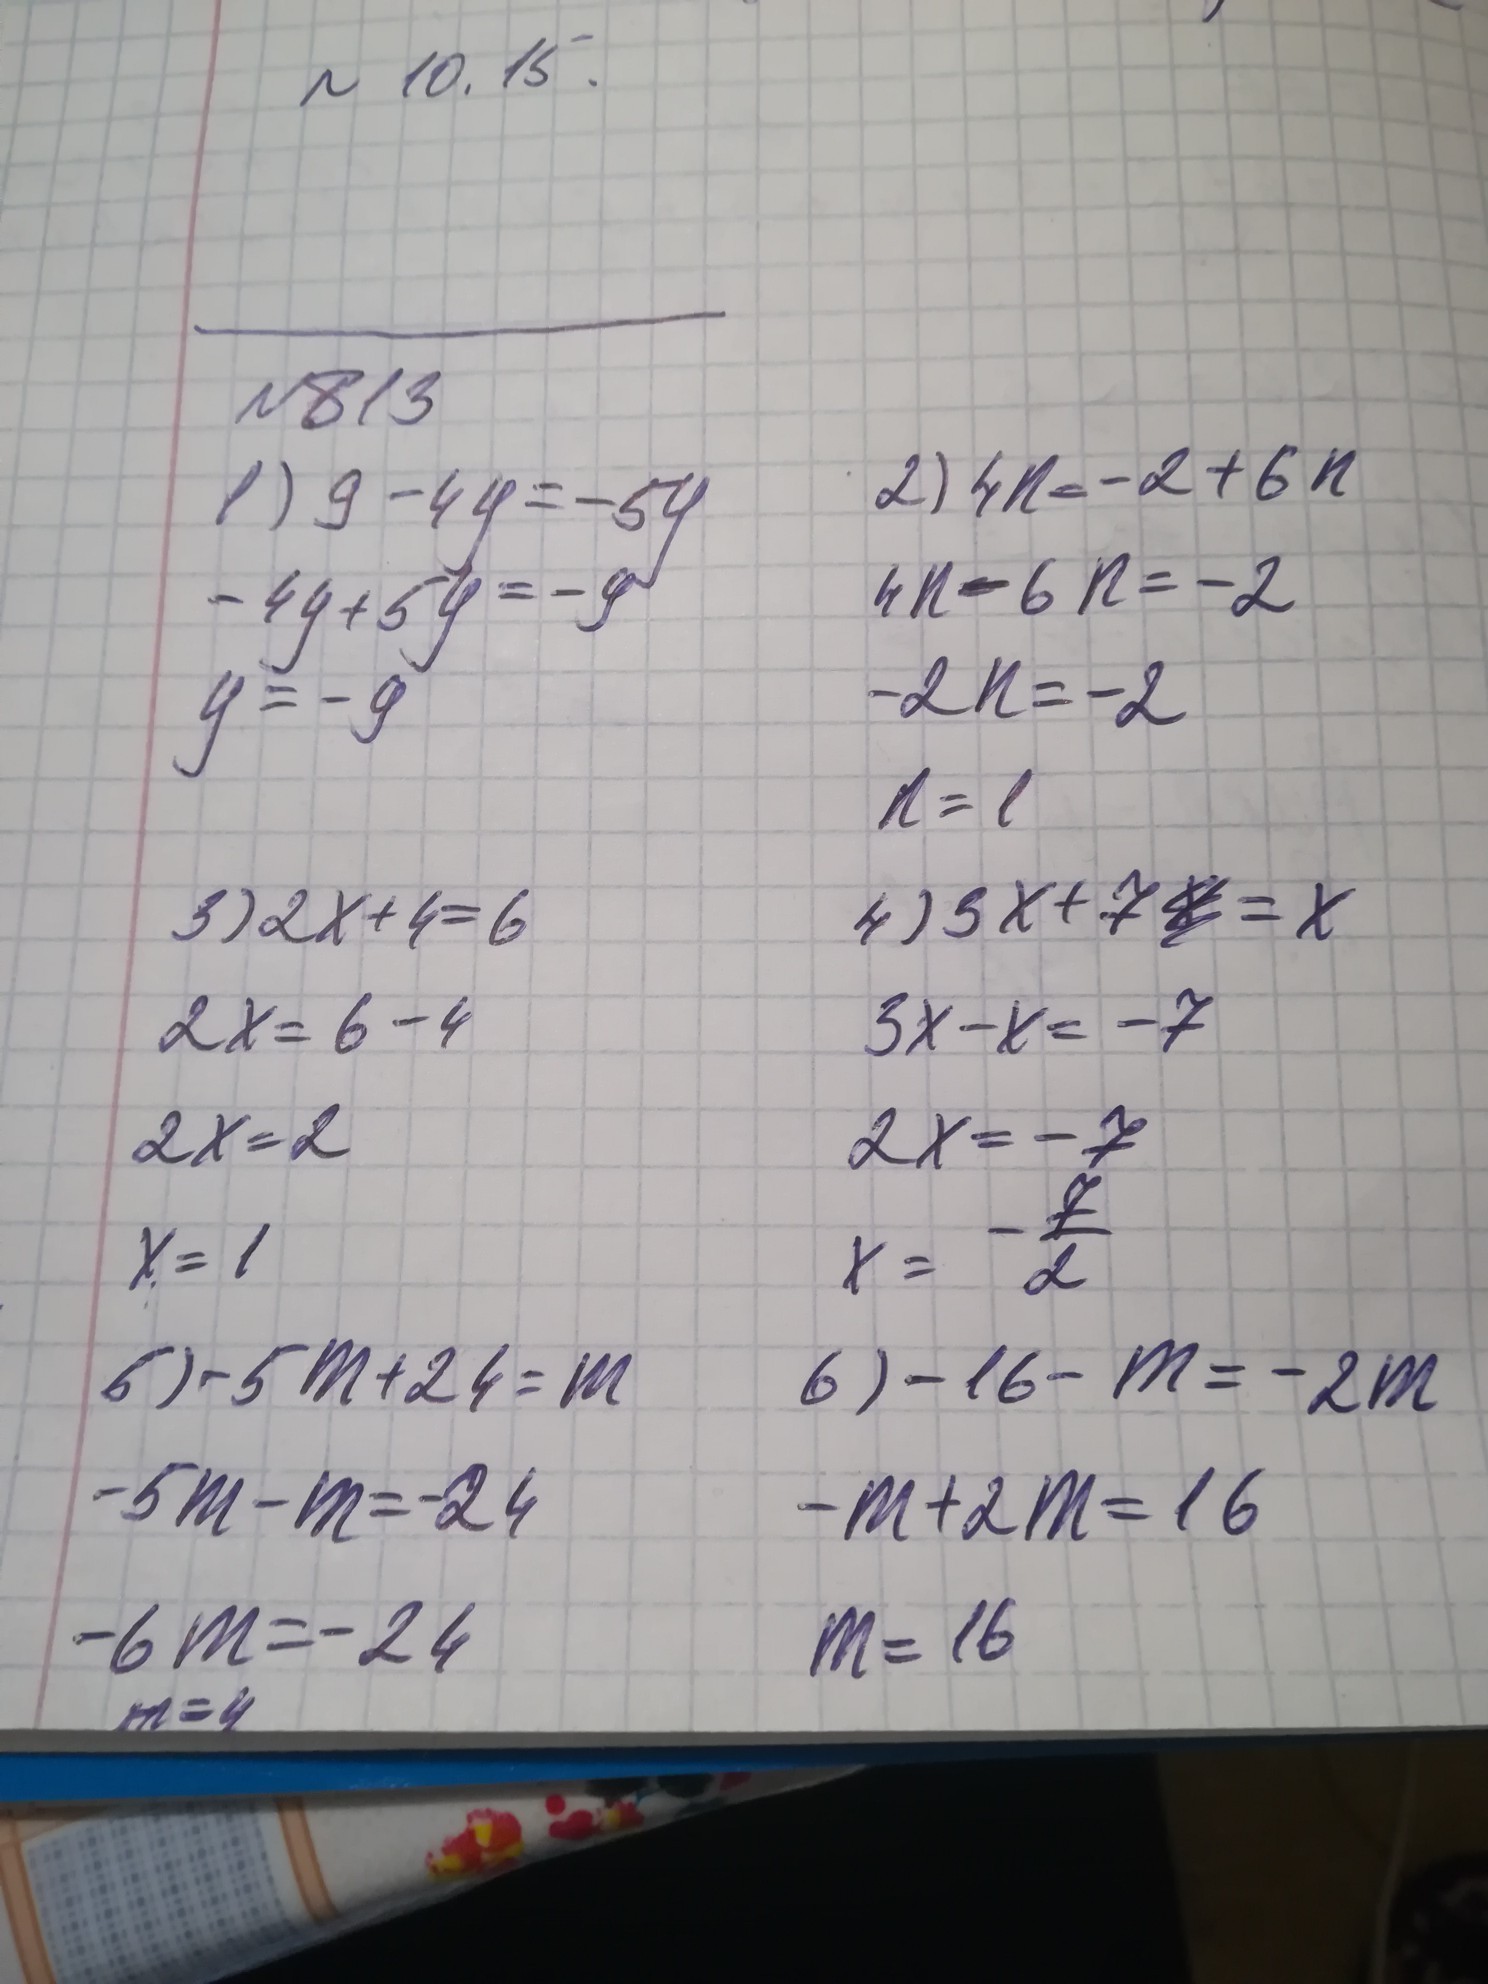 № 10.15.
№813
1) 9 - 4y = -5y
-4y + 5y = -9
y = -9
2) 4n = -2 + 6n
4n - 6n = -2
-2n = -2
n = 1
3) 2x + 4 = 6
2x = 6 - 4
2x = 2
x = 1
4) 3x + 7 = x
3x - x = -7
2x = -7
x = -7/2
5) -5m + 24 = m
-5m - m = -24
-6m = -24
m = 4
6) -16 - m = -2m
-m + 2m = 16
m = 16